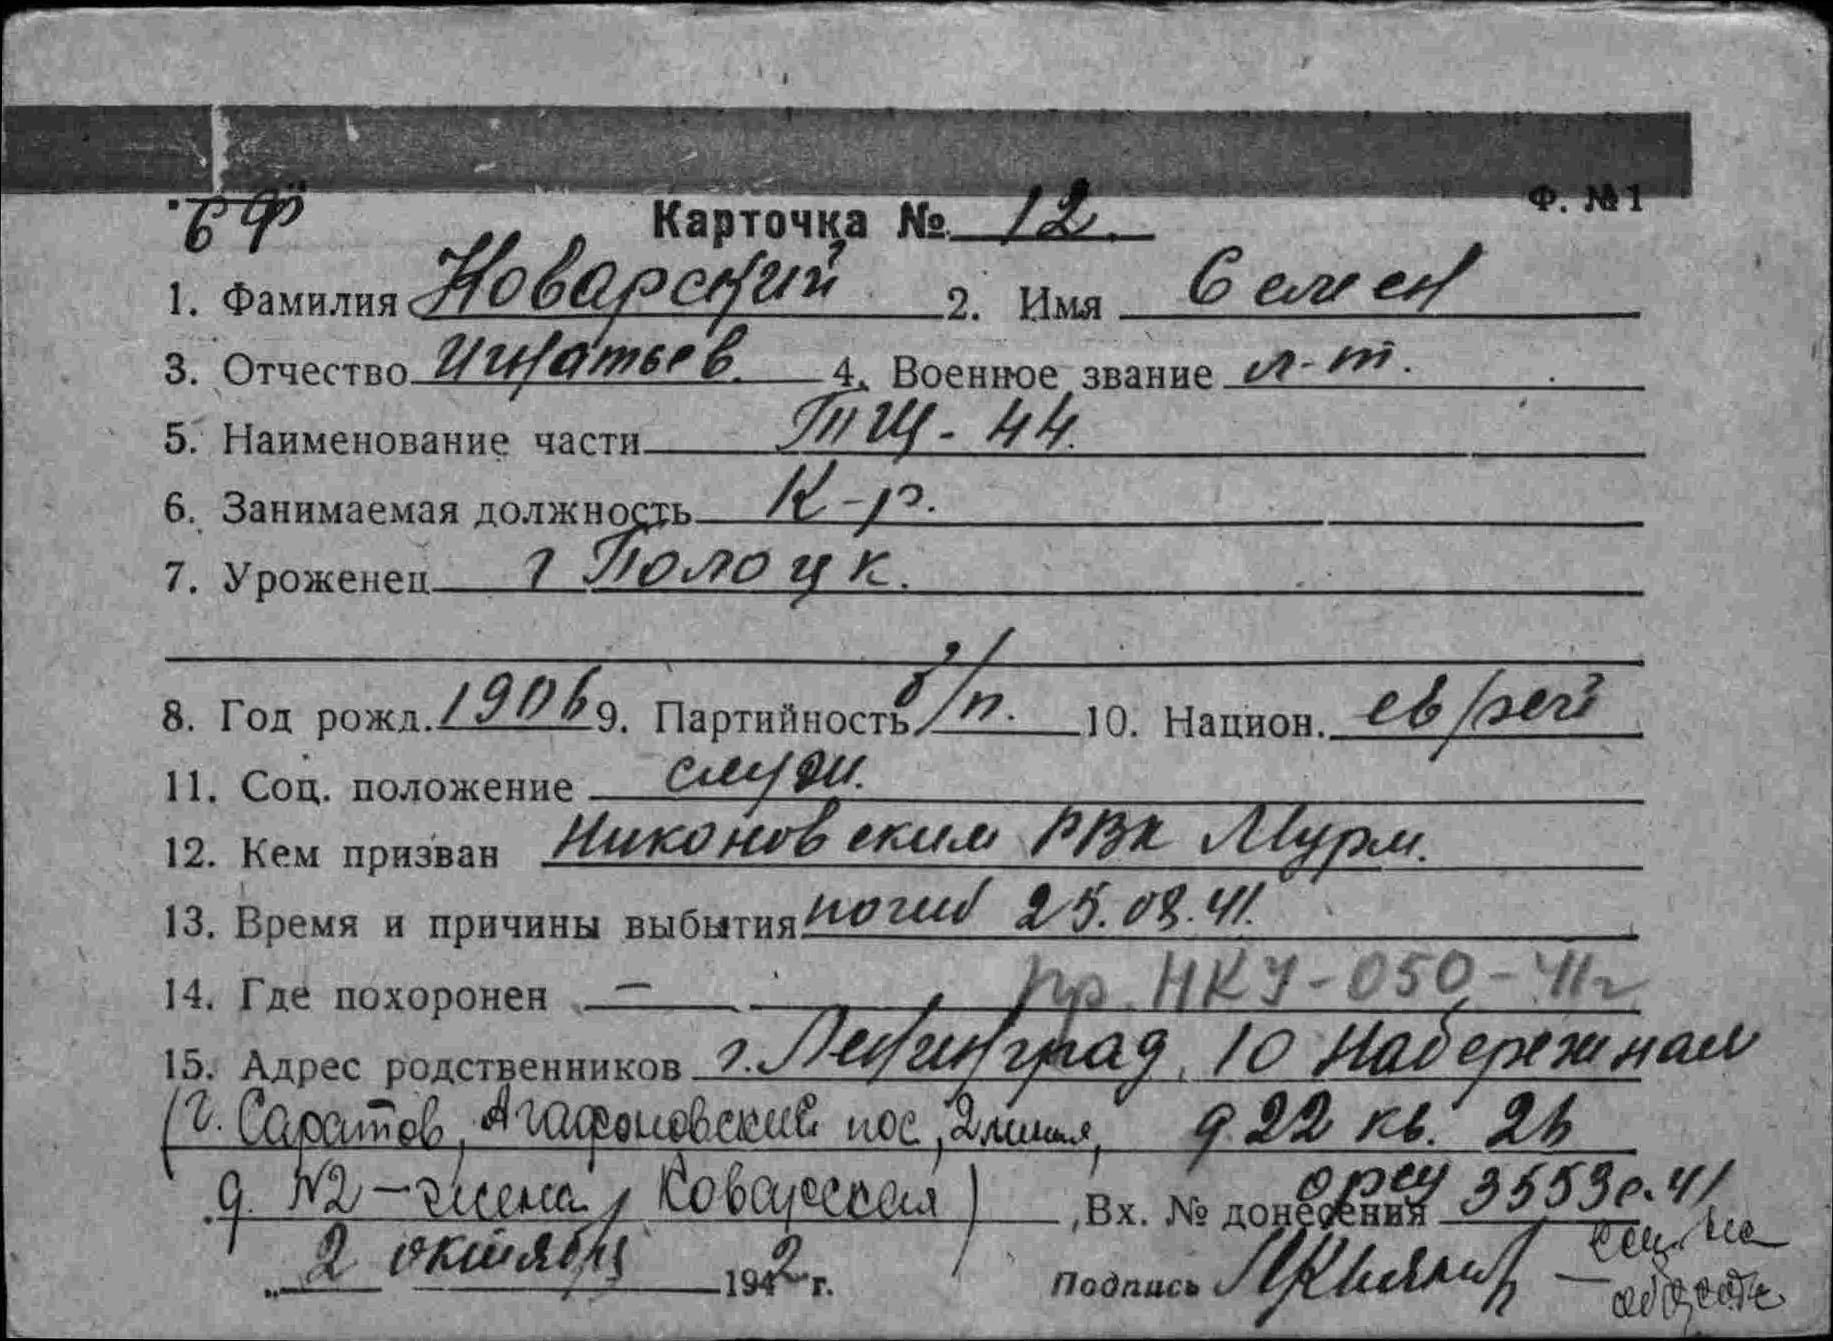 Ф. №1
6 Ф
Карточка № 12.
1. Фамилия Коварский 2. Имя Семен
3. Отчество Игнатьев. 4. Военное звание л-т.
5. Наименование части ТЩ-44.
6. Занимаемая должность К-р.
7. Уроженец г Полоцк.
8. Год рожд. 1906 9. Партийность б/п. 10. Национ. еврей
11. Соц. положение служ.
12. Кем призван Никоновским РВК Мурм.
13. Время и причины выбытия погиб 25.08.41.
14. Где похоронен — пр. НКУ-050-41г
15. Адрес родственников г. Ленинград, 10 Набережная
(г. Саратов, Агафоновский пос, 2 линия, д 22 кв. 26
д. №2 – жена Коварская) , Вх. № донесения орсу 3553с.41
„ 2 октября 1942 г. Подпись см. на обороте